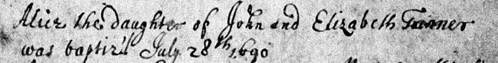 Alice the daughter of John and Elizabeth Turner
was baptiz'd July 28th, 1690